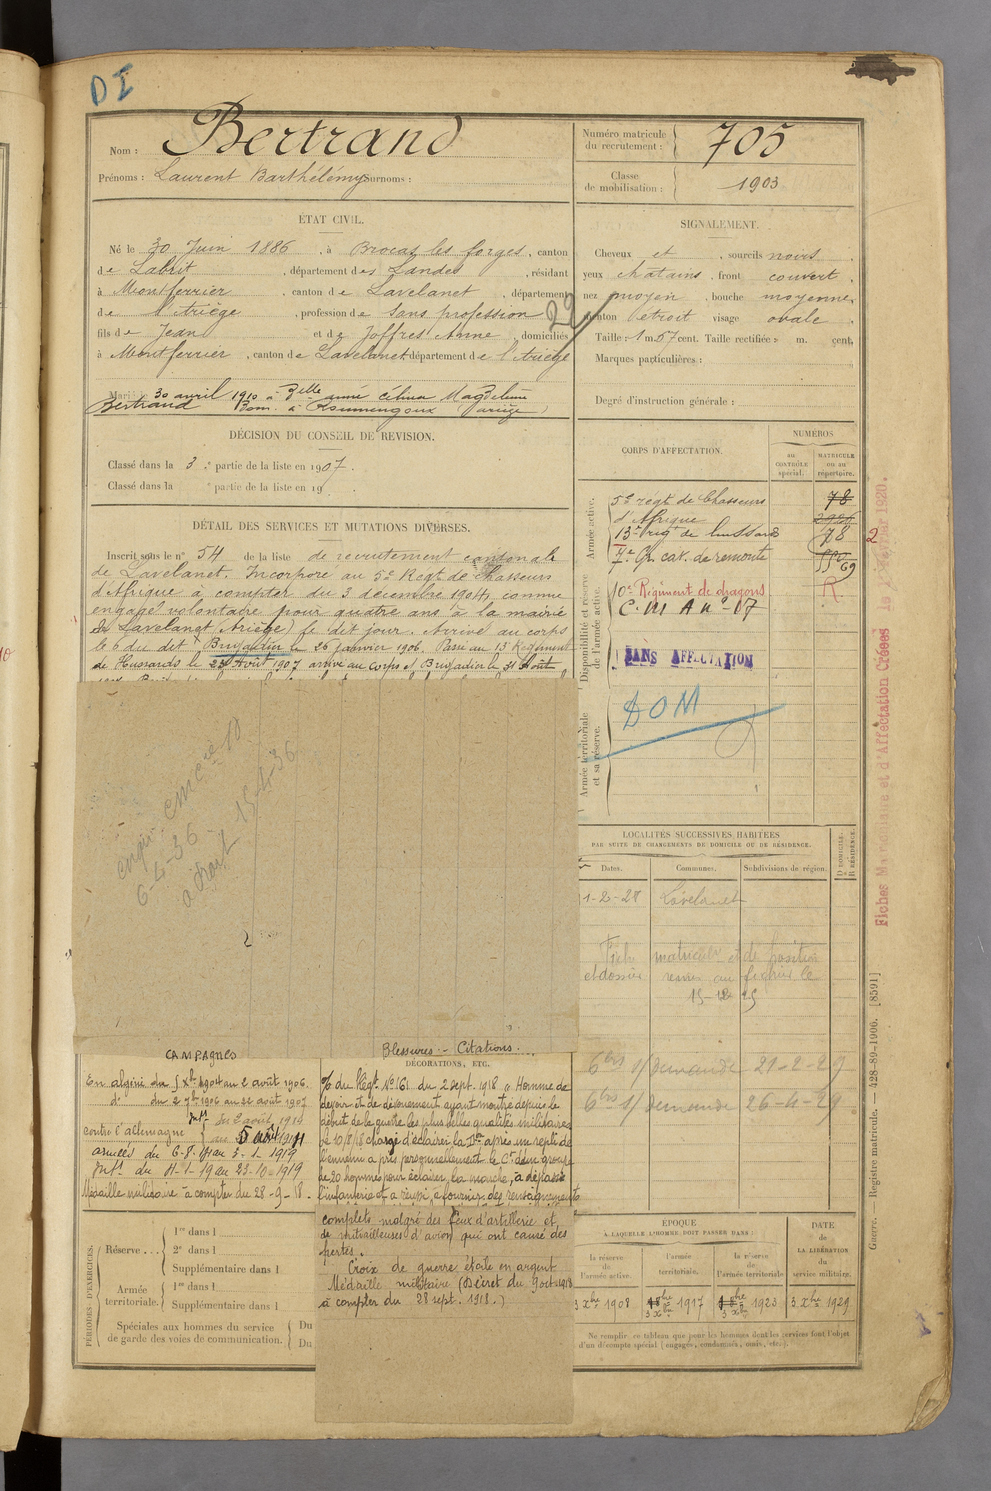 DI
Nom : Bertrand
Prénoms : Laurent Barthélémy Surnoms :
Numéro matricule du recrutement : 705
Classe de mobilisation : 1903
ÉTAT CIVIL.
Né le 30 Juin 1886, à Brocas les forges, canton
de Labrit, département des Landes, résidant
à Montferrier, canton de Lavelanet, département
de l'Ariège, profession de Sans profession
fils de Jean et de Joffres Anne, domiciliés
à Montferrier, canton de Lavelanet département de l'Ariège
Marié 30 avril 1910 à Delle Célina Magdeleine
Bertrand
22
SIGNALEMENT.
Cheveux et , sourcils noirs
yeux chatains, front couvert
nez moyen, bouche moyenne,
menton étroit visage ovale
Taille : 1 m. 67 cent. Taille rectifiée : m. cent.
Marques particulières :
Degré d'instruction générale :
DÉCISION DU CONSEIL DE REVISION.
Classé dans la 3e partie de la liste en 1907.
Classé dans la e partie de la liste en 19
DÉTAIL DES SERVICES ET MUTATIONS DIVERSES.
Inscrit sous le n° 54 de la liste de recrutement cantonal
de Lavelanet. Incorporé au 5e Régt de Chasseurs
d'Afrique à compter du 3 décembre 1904, comme
engagé volontaire pour quatre ans à la mairie
de Lavelanet Ariège) le dit jour. Arrivé au corps
le 6 du dit Brigadier le 26 janvier 1906. Passé au 13e Régiment
de Hussards le 23 Août 1907 arrivé au corps et Brigadier le 31 Août
CORPS D'AFFECTATION.
NUMÉROS
au CONTRÔLE spécial.
MATRICULE ou au répertoire.
Armée active.
5e régt de Chasseurs
d'Afrique
78
13e régt de hussards
78
7e Gr. cav. de remonte
69
2
Disponibilité et réserve de l'armée active.
10e Régiment de dragons
R.
C. M A no 07
SANS AFFECTATION
Armée territoriale et sa réserve.
DOM
Fiches Matriculaire et d'Affectation Créées le février 1920.
6-4-36
15-4-36
2
LOCALITÉS SUCCESSIVES HABITÉES
PAR SUITE DE CHANGEMENTS DE DOMICILE OU DE RÉSIDENCE.
Dates. Communes. Subdivisions de région.
D DOMICILE. R RÉSIDENCE.
1-2-28 Lavelanet
Fiche matricule et de position
et dossier
6 bis s/ demande 21-2-29
6 bis s/ demande 26-4-29
Guerre. — Registre matricule. — 428-89-1906. [8591]
CAMPAGNES
En algérie du 5 Xbre 1904 au 2 août 1906.
do du 2 7bre 1906 au 22 août 1907
Int. du 2 août 1914
contre l'allemagne 5 août 1914
armées du 6-8-14 au 3-1-1919
Int. du 4-1-19 au 23-10-1919
Médaille militaire à compter du 28-9-18.
Blessures - Citations.
DÉCORATIONS, ETC.
O/ du Régt N° 161 du 2 sept. 1918 « Homme de
devoir et de dévouement ayant montré depuis le
début de la guerre les plus belles qualités militaires
Le 10/8/18 chargé d'éclairer la Don après un repli de
l'ennemi a pris personnellement le Ct d'un groupe
de 20 hommes pour éclairer la marche, a dépassé
l'infanterie et a réussi à fournir des renseignements
complets malgré des feux d'artillerie et
de mitrailleuses d'avion qui ont causé des
pertes.
Croix de guerre étoile en argent
Médaille militaire (Décret du 9 oct 1918
à compter du 28 sept. 1918.)
PÉRIODES D'EXERCICES.
Réserve ... 1re dans l
2e dans l
Supplémentaire dans l
Armée territoriale. 1re dans l
Supplémentaire dans l
Spéciales aux hommes du service de garde des voies de communication. Du
Du
ÉPOQUE
À LAQUELLE L'HOMME DOIT PASSER DANS :
la réserve de l'armée active.
l'armée territoriale.
la réserve de l'armée territoriale
DATE de LA LIBÉRATION du service militaire.
3 Xbre 1908
3 Xbre 1917
3 Xbre 1923
3 Xbre 1929
Ne remplir ce tableau que pour les hommes dont les services font l'objet
d'un décompte spécial (engagés, condamnés, omis, etc.).